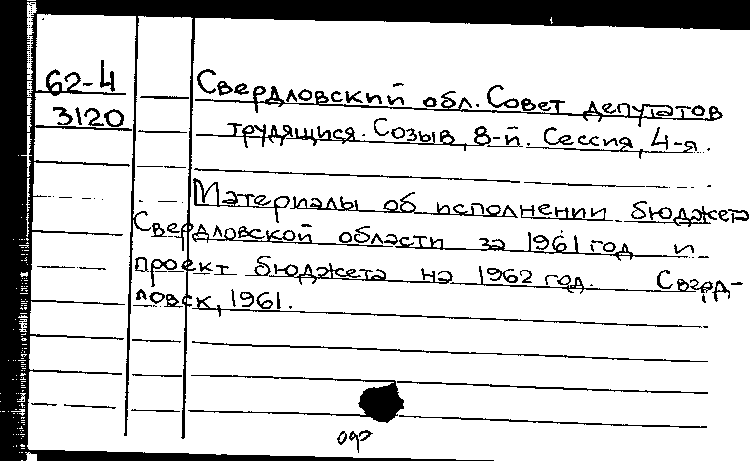 62-4
3120
Свердловский обл. Совет депутатов
трудящихся. Созыв, 8-й. Сессия, 4-я.
Материалы об исполнении бюджета
Свердловской области за 1961 год и
проект бюджета на 1962 год. Сверд-
ловск, 1961.